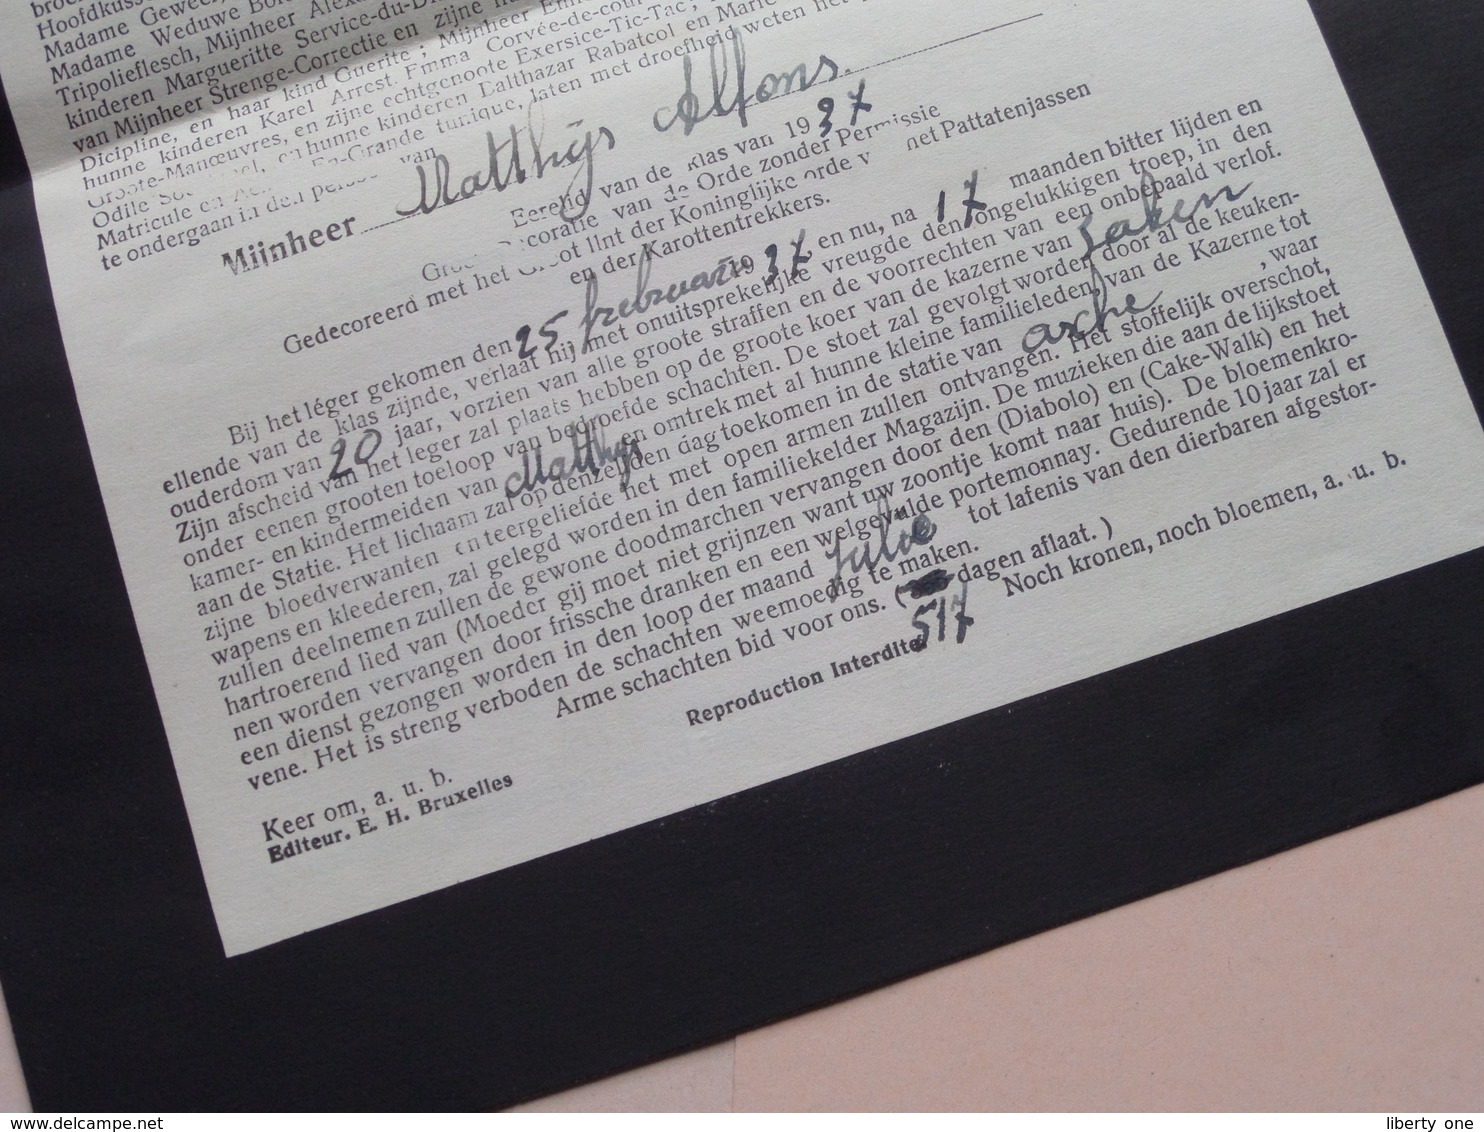 Hoofdkuss
Madame Gewee
Madame Weduwe
Tripolieflesch, Mijnheer Alex
kinderen Margueritte Service-du-D
van Mijnheer Strenge-Correctie en zijne
Dicipline, en haar kind Guerite; Mijnheer
hunne kinderen Karel Arrest. Emma Corvée-de-cour
Groote-Manœuvres, en zijne echtgenoote Exersice-Tic-Tac;
Odile hunne kinderen Balthazar Rabatcol en Marie
Matricule en En-Grande tunique, laten met droefheid weten het
te ondergaan in den van
Mijnheer Matthijs Alfons.
Eerelid van de klas van 1937
van de Orde zonder Permissie
Gedecoreerd met het Groot lint der Koninglijke orde met Pattatenjassen
en der Karottentrekkers.
Bij het léger gekomen den 25 februari 1937, en nu, na 17 maanden bitter lijden en
ellende van de klas zijnde, verlaat hij met onuitsprekelijke vreugde den ongelukkigen troep, in den
ouderdom van 20 jaar, vorzien van alle groote straffen en de voorrechten van een onbepaald verlof.
Zijn afscheid van het leger zal plaats hebben op de groote koer van de kazerne van
onder eenen grooten toeloop van bedroefde schachten. De stoet zal gevolgt worden door al de keuken-
kamer- en kindermeiden van Matthijs en omtrek met al hunne kleine familieleden, van de Kazerne tot
aan de Statie. Het lichaam zal op denzelfden dag toekomen in de statie van asche, waar
zijne bloedverwanten en teergeliefde het met open armen zullen ontvangen. Het stoffelijk overschot,
wapens en kleederen, zal gelegd worden in den familiekelder Magazijn. De muzieken die aan de lijkstoet
zullen deelnemen zullen de gewone doodmarchen vervangen door den (Diabolo) en (Cake-Walk) en het
hartroerend lied van (Moeder gij moet niet grijnzen want uw zoontje komt naar huis). De bloemenkro-
nen worden vervangen door frissche dranken en een welgevulde portemonnay. Gedurende 10 jaar zal er
een dienst gezongen worden in den loop der maand Julie tot lafenis van den dierbaren afgestor-
vene. Het is streng verboden de schachten weemoedig te maken.
Arme schachten bid voor ons. ( 517 dagen aflaat. )
Noch kronen, noch bloemen, a. u. b.
Reproduction Interdite
Keer om, a. u. b.
Editeur. E. H. Bruxelles
liberty one